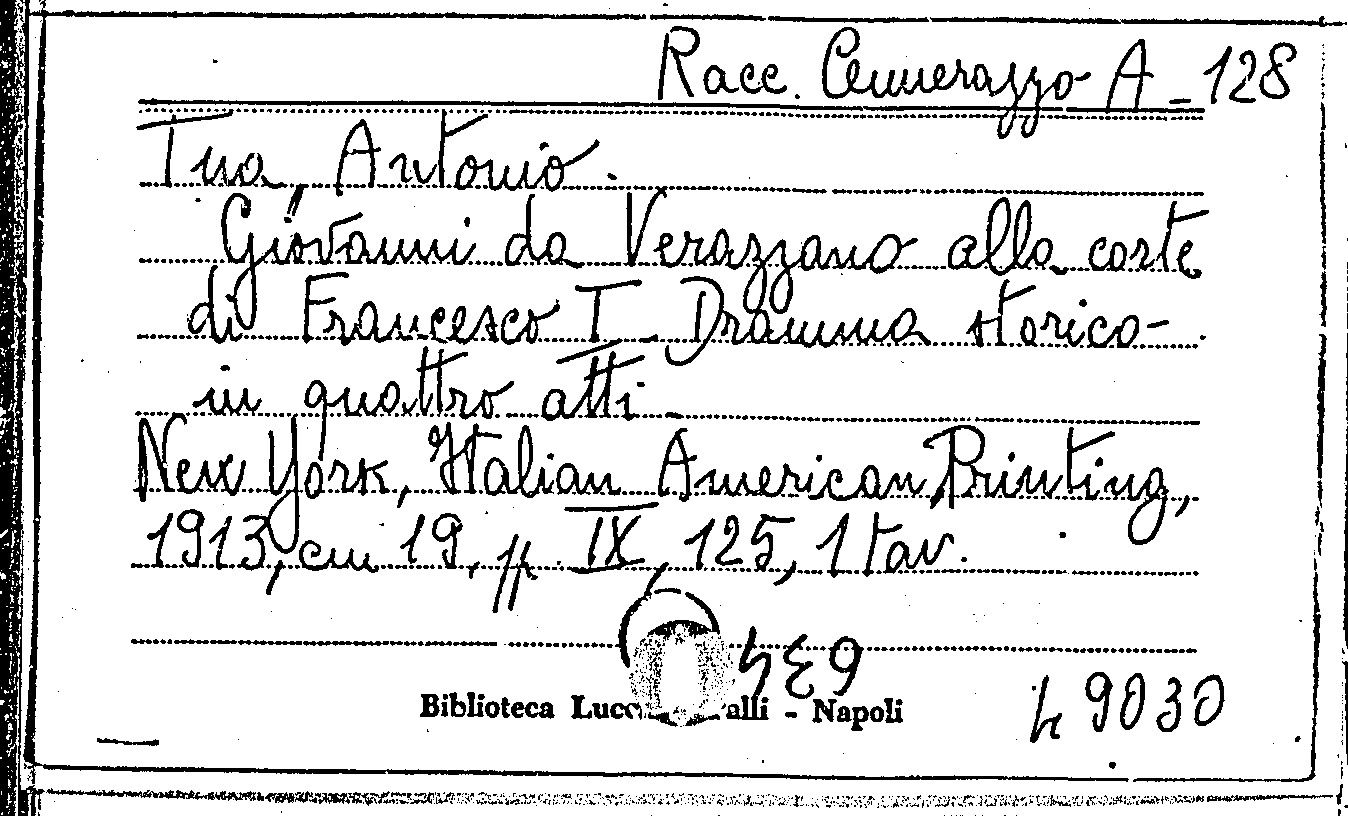 Racc. Cennerazzo A - 128
Tua, Antonio.
Giovanni da Verazzano alla corte
di Francesco I - Dramma storico -
in quattro atti -
New York, Italian American Printing,
1913, cm 19, pp. IX, 125, 1 tav.
Biblioteca - Napoli
49030